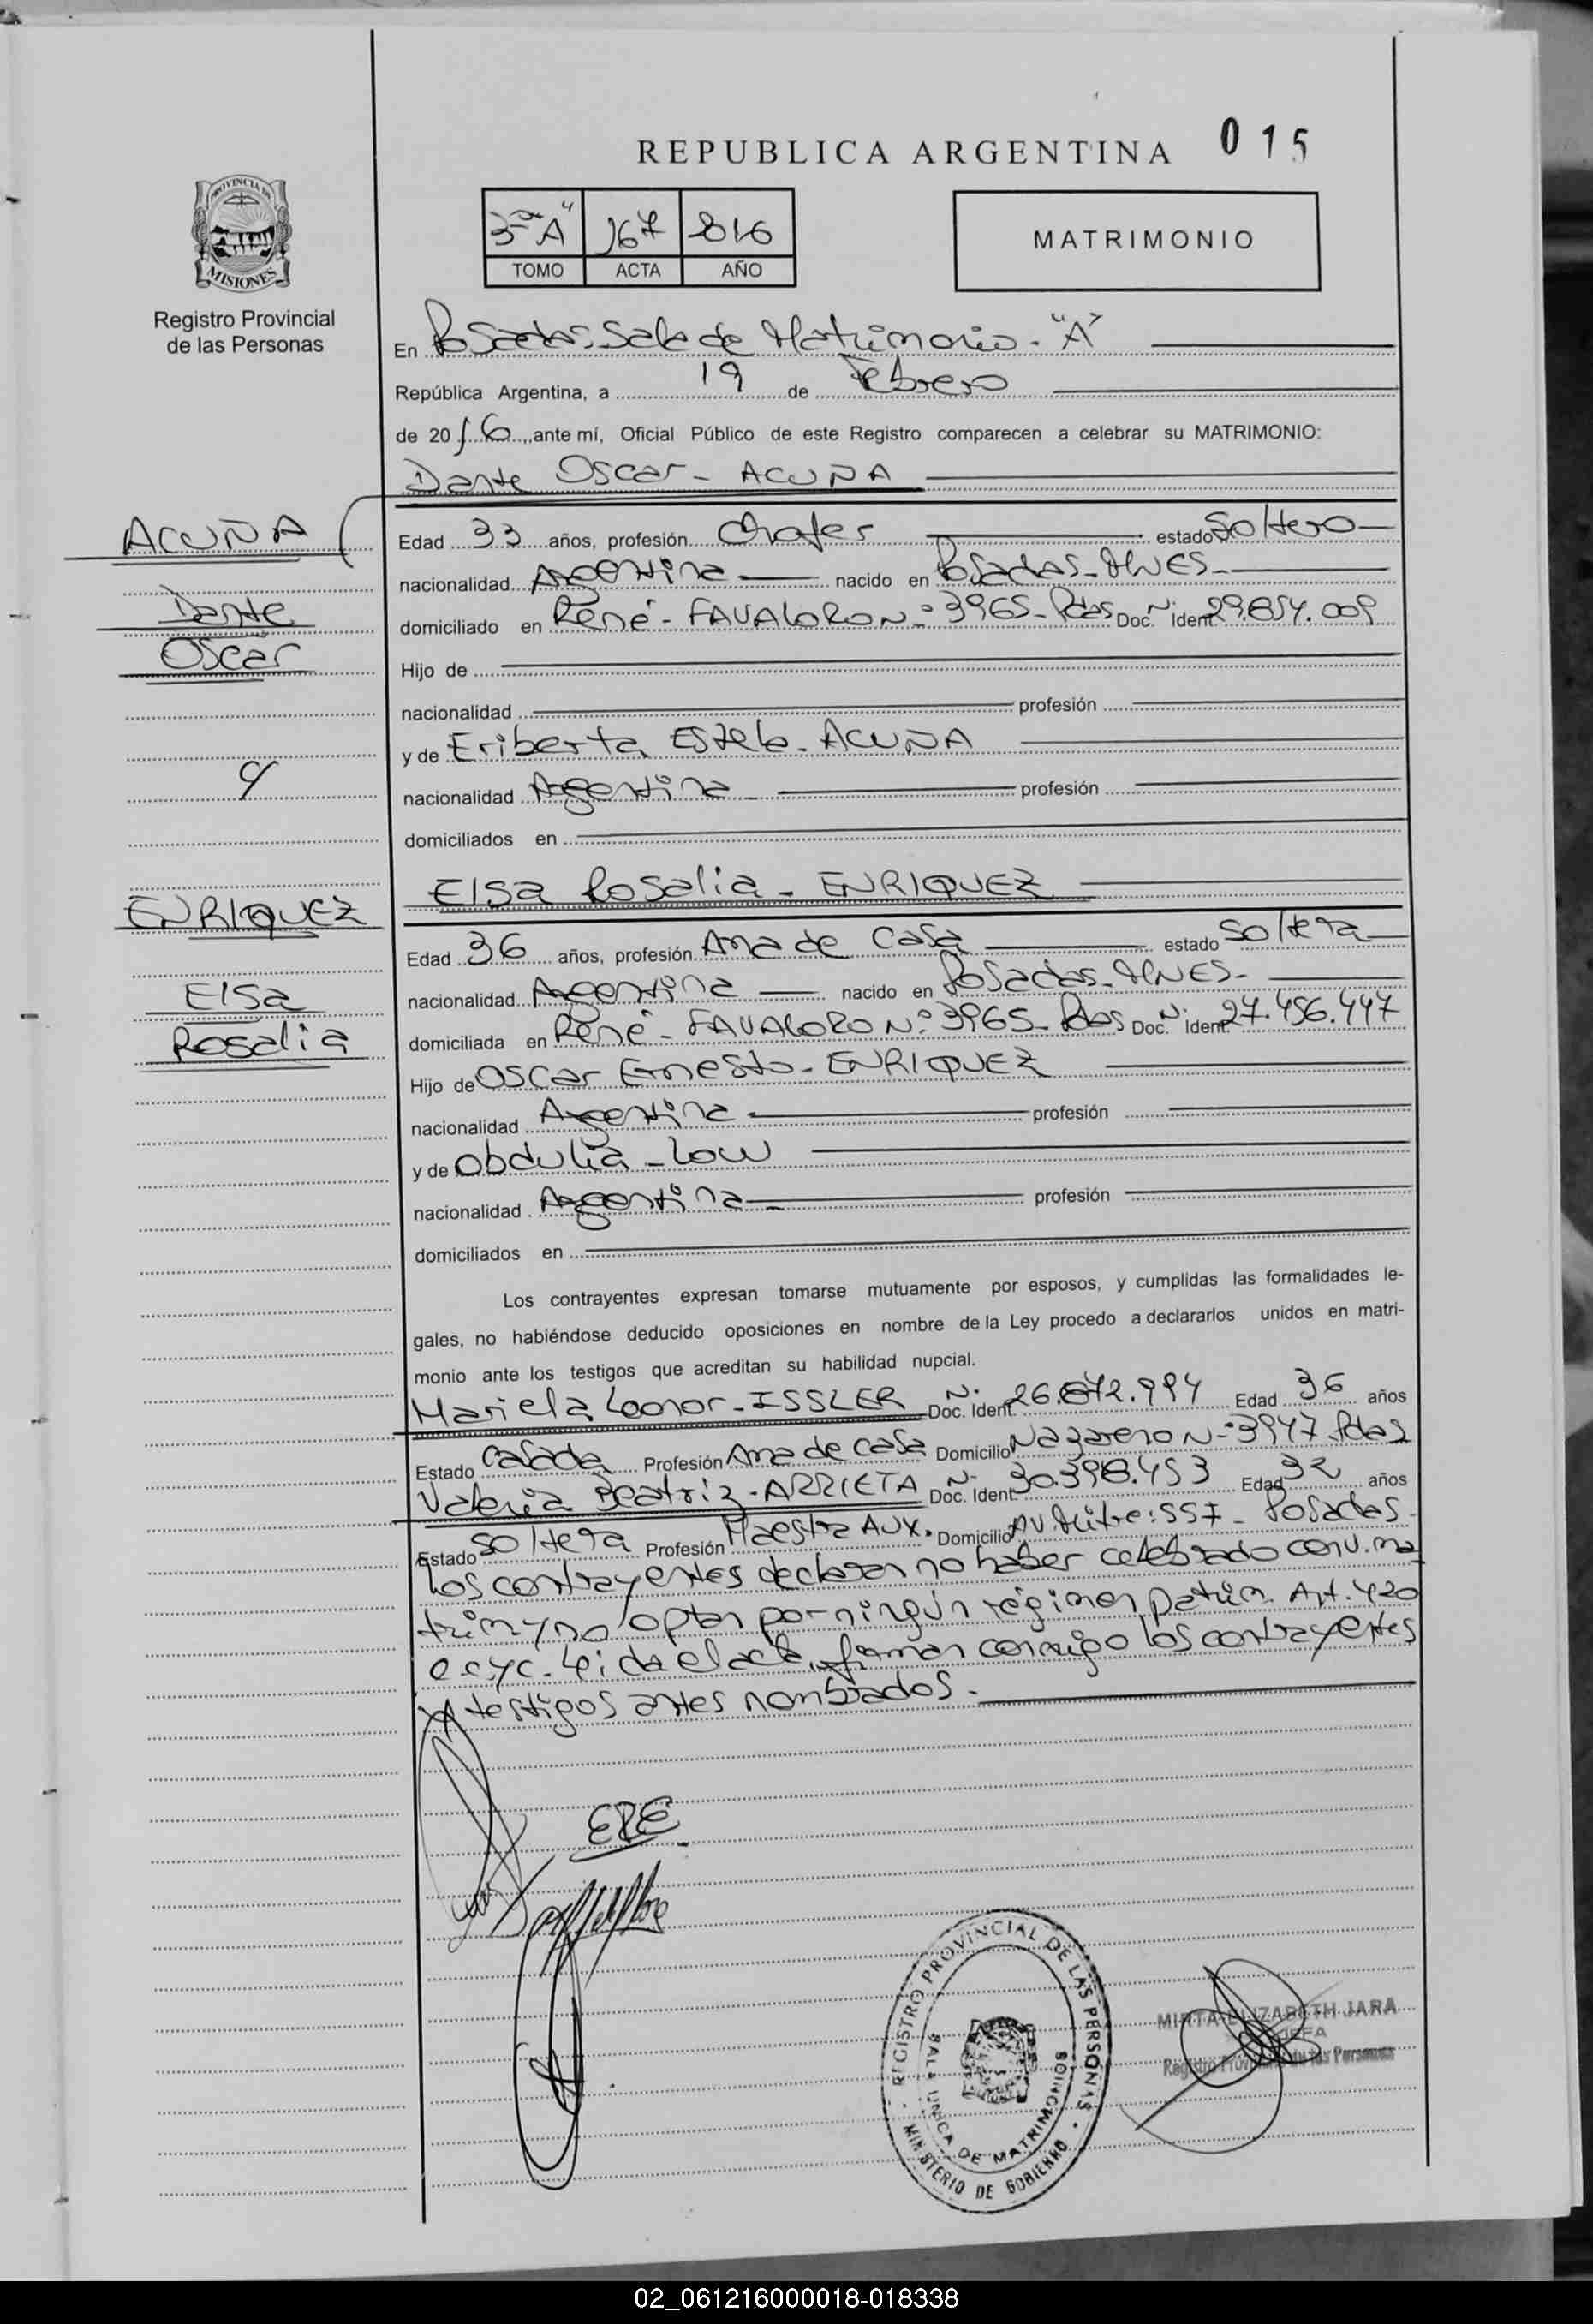 REPUBLICA ARGENTINA 015
3ra "A" 167 816
TOMO ACTA AÑO
MATRIMONIO
PROVINCIA DE MISIONES
Registro Provincial
de las Personas
En Posadas. Sala de Matrimonio - "A"
República Argentina, a 19 de Febrero
de 2016, ante mí, Oficial Público de este Registro comparecen a celebrar su MATRIMONIO:
Dante Oscar - ACUÑA
ACUÑA
Dante
Oscar
Edad 33 años, profesión Chofer estado Soltero
nacionalidad Argentina nacido en Posadas - MNES.
domiciliado en René - FAVALORO N° 3965 - Pdas Doc. N. Ident. 29.854.009
Hijo de
nacionalidad profesión
y de Eriberta Estela - ACUÑA
nacionalidad Argentina profesión
domiciliados en
y
Elsa Rosalia - ENRIQUEZ
ENRIQUEZ
Elsa
Rosalia
Edad 36 años, profesión Ama de Casa estado Soltera
nacionalidad Argentina nacido en Posadas - MNES -
domiciliada en René - FAVALORO N° 3965 - Pdas Doc. N. Ident. 27.456.447
Hijo de Oscar Ernesto - ENRIQUEZ
nacionalidad Argentina profesión
y de Obdulia - Low
nacionalidad Argentina profesión
domiciliados en
Los contrayentes expresan tomarse mutuamente por esposos, y cumplidas las formalidades le-
gales, no habiéndose deducido oposiciones en nombre de la Ley procedo a declararlos unidos en matri-
monio ante los testigos que acreditan su habilidad nupcial.
Mariela Leonor - ISSLER Doc. N. Ident. 26.872.994 Edad 36 años
Estado Casada Profesión Ama de Casa Domicilio Nazareno N° 3947 Pdas
Valeria Beatriz - ARRIETA Doc. N. Ident. 30.398.453 Edad 32 años
Estado Soltera Profesión Maestra AUX. Domicilio AV. Mitre: 557 - Posadas.
Los contrayentes declaran no haber celebrado conv. ma
trim y no optan por ningún régimen patrim. Art. 420
c.c y c. Leida el acta, firman conmigo los contrayentes
y testigos antes nombrados.
ERE
REGISTRO PROVINCIAL DE LAS PERSONAS
SALA UNICA DE MATRIMONIOS
MINISTERIO DE GOBIERNO
MIRTA ELIZABETH JARA
JEFA
Registro Provincial de las Personas
02_061216000018-018338